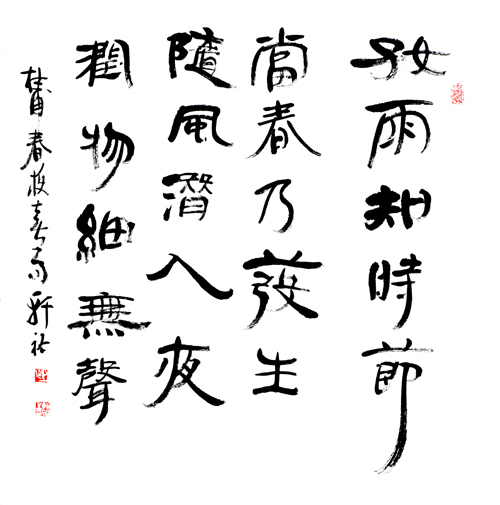 好雨知時節
當春乃發生
隨風潛入夜
潤物細無聲
杜甫春夜喜雨